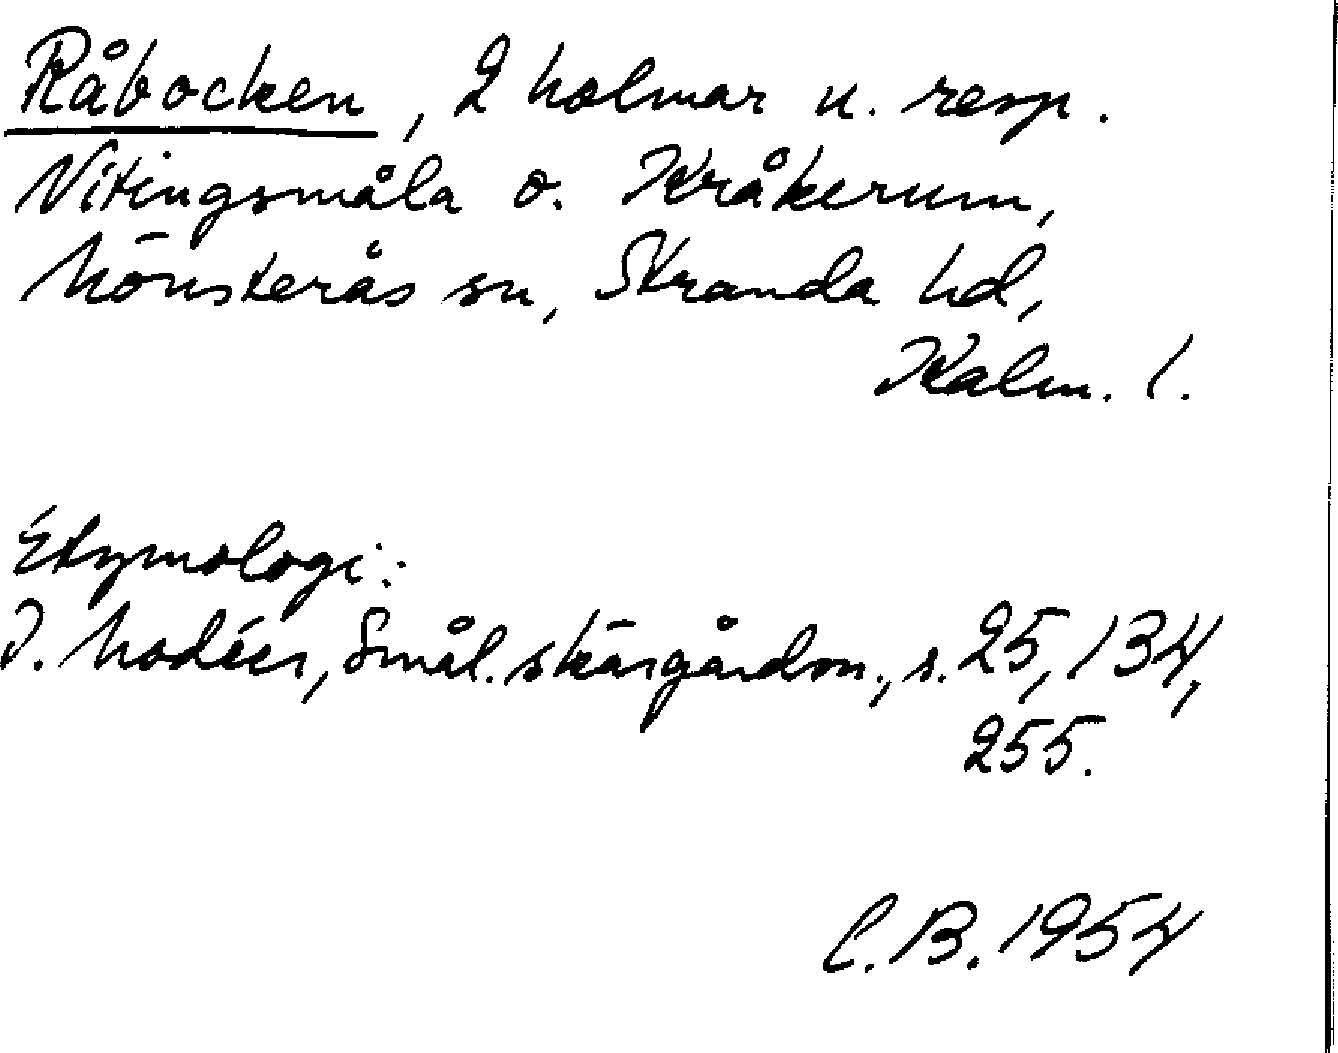 Råbocken, 2 holmar u. resp.
Vitingsmåla o. Kråkerum,
Mönsterås sn, Stranda hd,
Kalm. l.
Etymologi:
I. Modéer, Smål. skärgårdsn., s. 25, 134,
255.
C.B. 1954